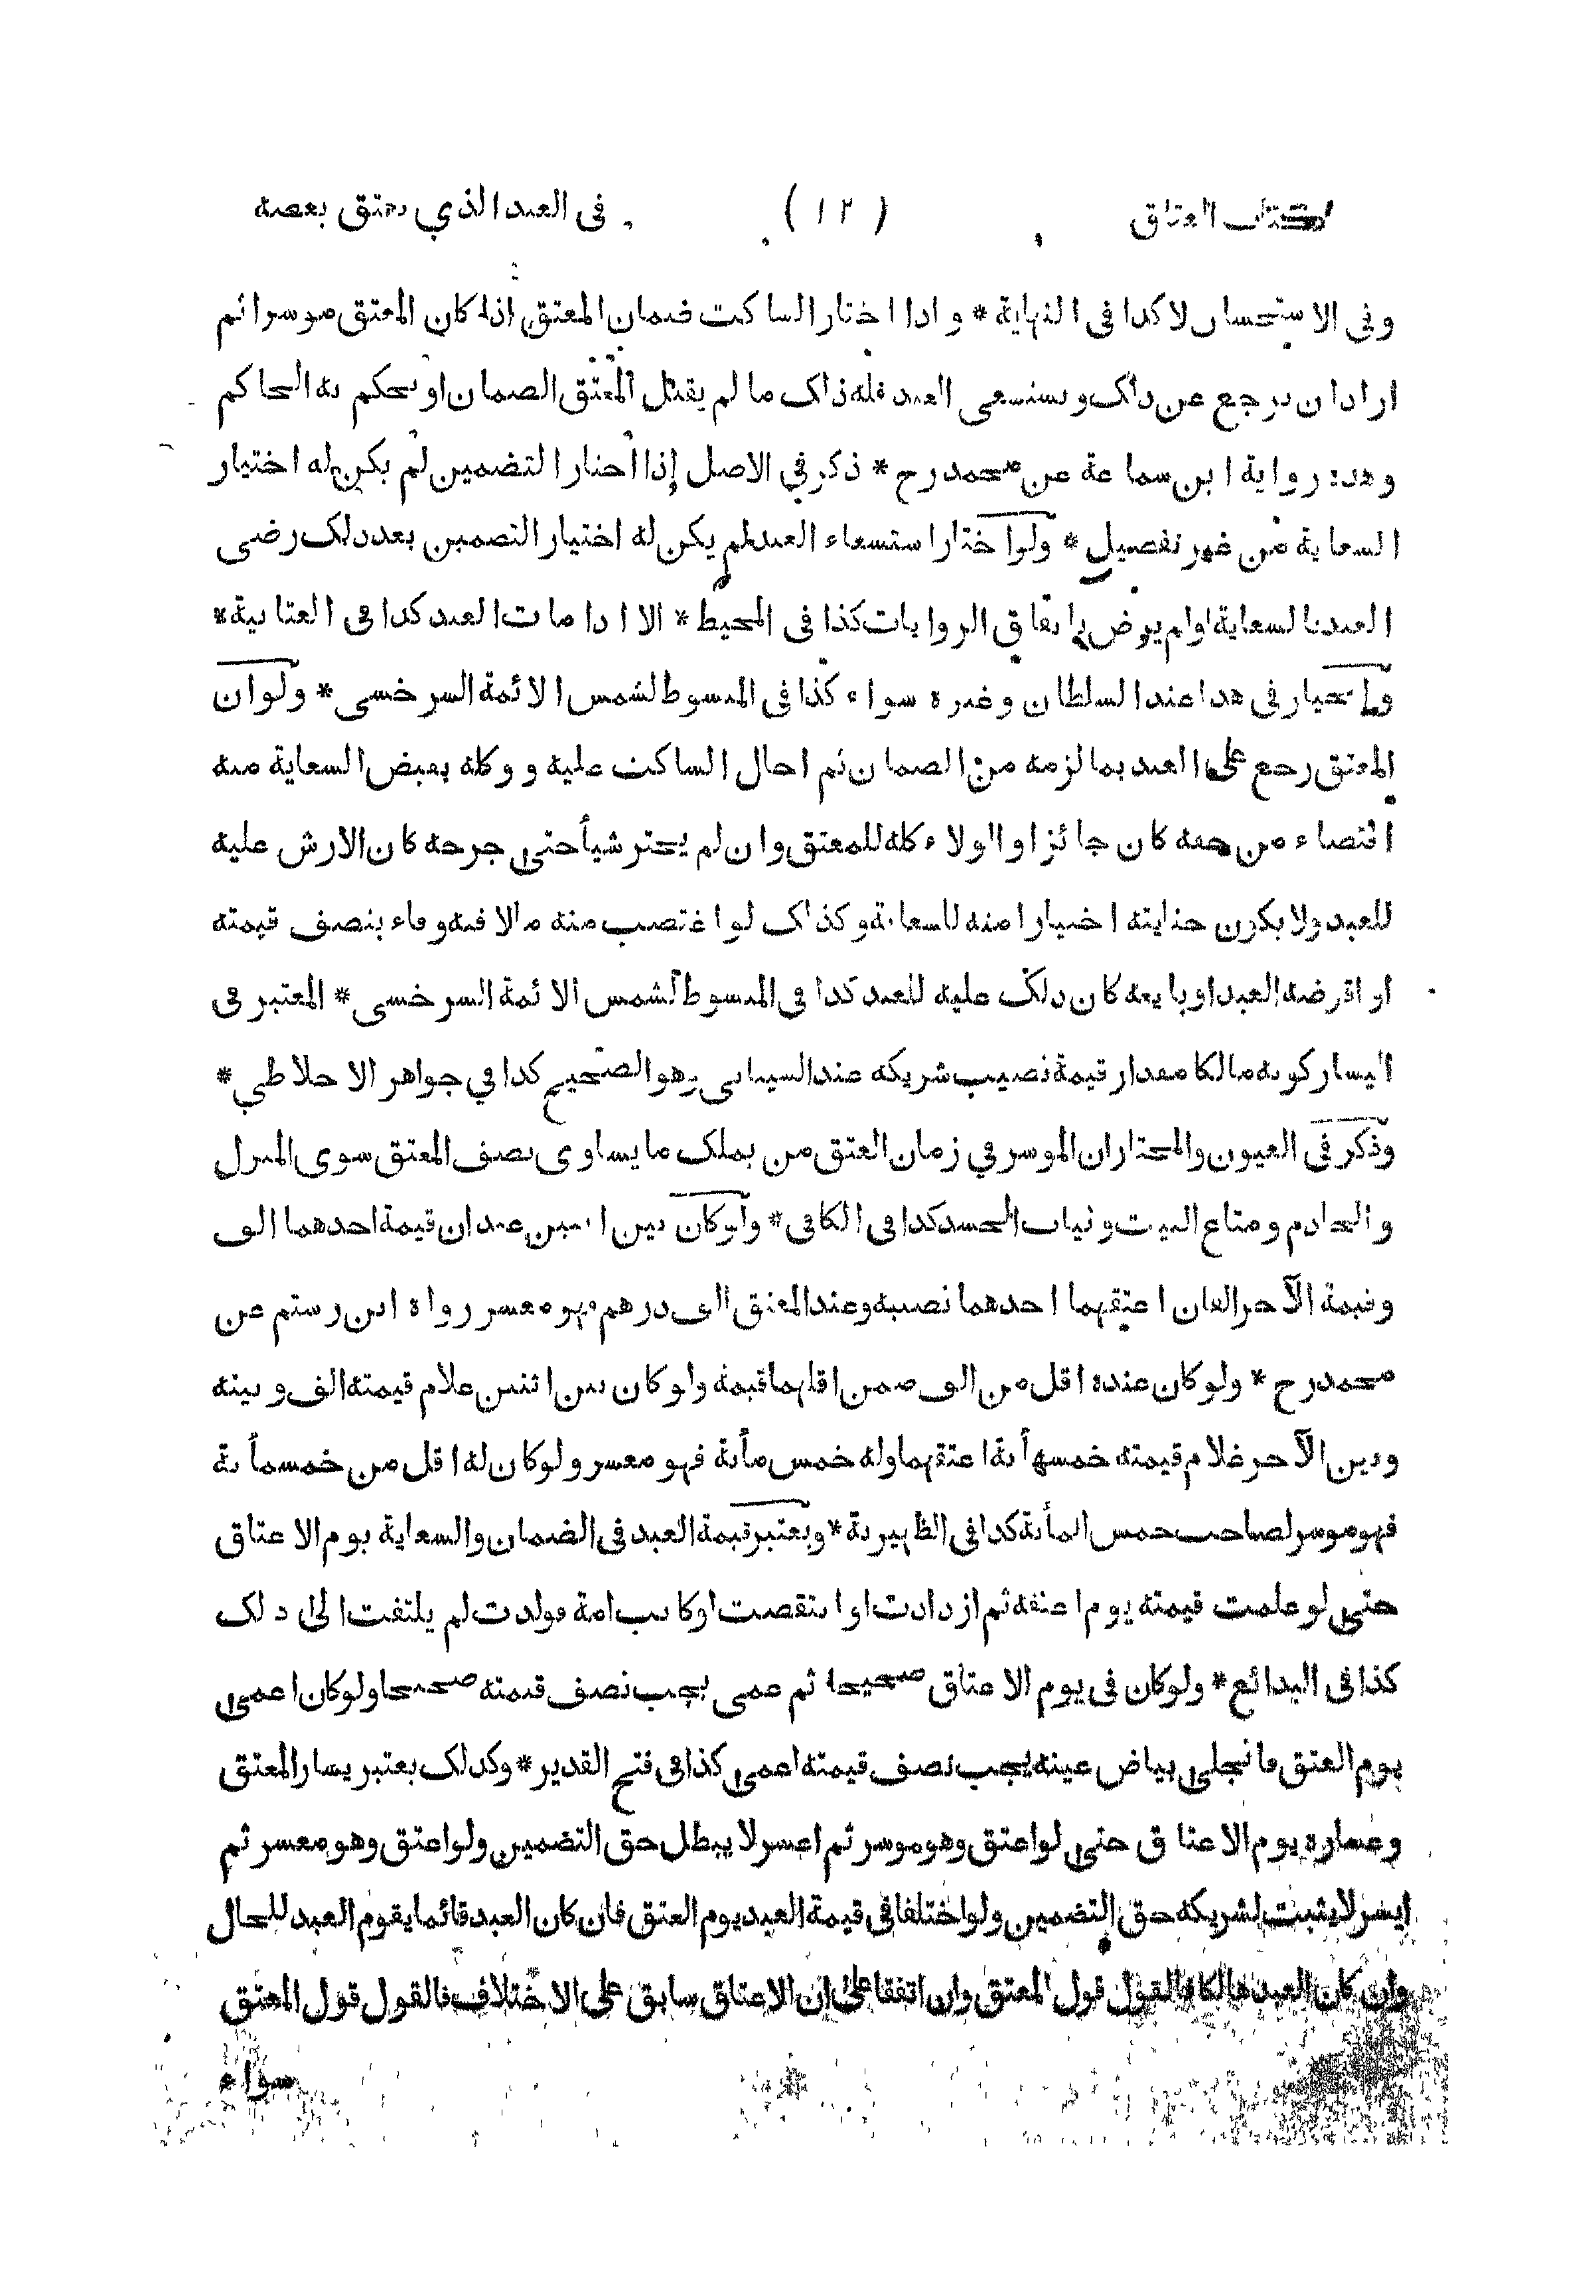 كتاب العتاق (١٢) في العبد الذي يعتق بعضه
وفي الاستحسان لا كذا في النهاية * واذا اختار الساكت ضمان المعتق اذا كان المعتق موسرا ثم
اراد ان يرجع عن ذلك ويستسعى العبد فله ذلك ما لم يقبل المعتق الضمان او يحكم به الحاكم
وهذه رواية ابن سماعة عن محمد رح * ذكر في الاصل إذا اختار التضمين لم يكن له اختيار
السعاية من غير تفصيل * ولو اختار استسعاء العبد لم يكن له اختيار التضمين بعد ذلك رضي
العبد بالسعاية او لم يرض باتفاق الروايات كذا في المحيط * الا اذا مات العبد كذا في العتابية *
والخيار في هذا عند السلطان وغيره سواء كذا في المبسوط لشمس الائمة السرخسي * ولو ان
المعتق رجع على العبد بما لزمه من الضمان ثم احال الساكت عليه ووكله بقبض السعاية منه
اقتضاء من حقه كان جائزا والولاء كله للمعتق وان لم يختر شيأ حتى جرحه كان الارش عليه
للعبد ولا يكون جنايته اختيارا منه للسعاية وكذلك لو اغتصب منه مالا فيه وفاء بنصف قيمته
او اقرضه العبد او بايعه كان ذلك عليه للعبد كذا في المبسوط لشمس الائمة السرخسي * المعتبر في
اليسار كونه مالكا مقدار قيمة نصيب شريكه عند السيباني وهو الصحيح كذا في جواهر الاخلاطي *
وذكر في العيون والمختار ان الموسر في زمان العتق من يملك ما يساوي نصف المعتق سوى المنزل
والخادم ومتاع البيت وثياب الجسد كذا في الكافي * ولو كان بين اثنين عبدان قيمة احدهما الف
وقيمة الآخر الفان اعتقهما احدهما نصيبه وعند المعتق الف درهم فهو معسر رواه ابن رستم عن
محمد رح * ولو كان عنده اقل من الف ضمن اقلهما قيمة ولو كان بين اثنين غلام قيمته الف وبينه
وبين الآخر غلام قيمته خمسمأية اعتقهما وله خمس مأية فهو معسر ولو كان له اقل من خمسمأية
فهو موسر لصاحب خمس المأية كذا في الظهيرية * ويعتبر قيمة العبد في الضمان والسعاية يوم الاعتاق
حتى لو علمت قيمته يوم اعتقه ثم ازدادت او انتقصت او كانت امة فولدت لم يلتفت الى ذلك
كذا في البدائع * ولو كان في يوم الاعتاق صحيحا ثم عمي يجب نصف قيمته صحيحا ولو كان اعمى
يوم العتق فانجلى بياض عينه يجب نصف قيمته اعمى كذا في فتح القدير * وكذلك يعتبر يسار المعتق
وعساره يوم الاعتاق حتى لو اعتق وهو موسر ثم اعسر لا يبطل حق التضمين ولو اعتق وهو معسر ثم
ايسر لا يثبت لشريكه حق التضمين ولو اختلفا في قيمة العبد يوم العتق فان كان العبد قائما يقوم العبد للحال
وان كان العبد هالكا فالقول قول المعتق وان اتفقا على ان الاعتاق سابق على الاختلاف فالقول قول المعتق
سواء